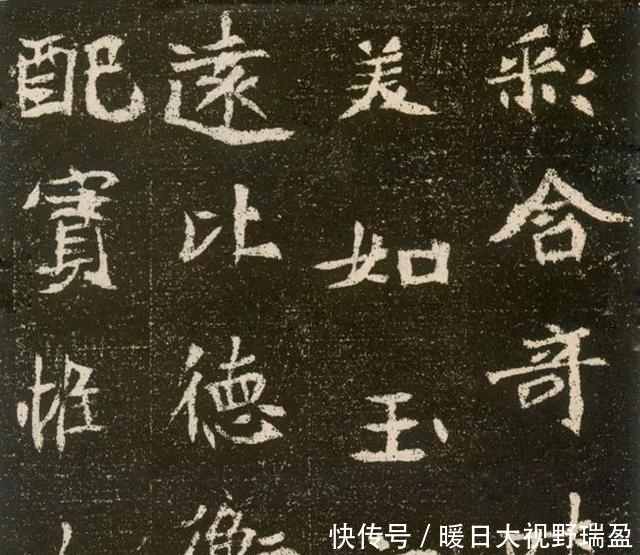 彩合奇
美如玉
遠比德
配寶惟
快传号 / 暖日大视野瑞盈